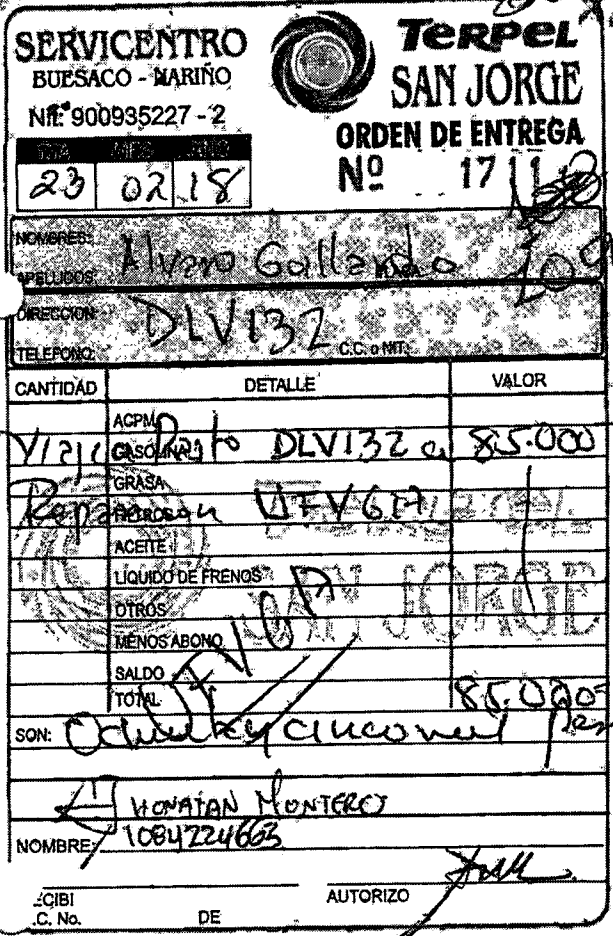 SERVICENTRO
BUESACO - NARIÑO
Nit: 900935227 - 2
TERPEL
SAN JORGE
ORDEN DE ENTREGA
Nº 17
DIA MES AÑO
23 02 18
NOMBRES:
APELLIDOS: Alvaro Gallardo
PLACA
DIRECCION:
DLV132
TELEFONO: C.C. o NIT.:
CANTIDAD DETALLE VALOR
ACPM
GASOLINA
Viaje DLV132 a 85.000
GRASA
Reparacion
ACEITE
LIQUIDO DE FRENOS
OTROS
SAN JORGE
MENOS ABONO
SALDO
TOTAL 85.000
SON: Ochenta y cinco mil
HONATAN MONTERO
NOMBRE: 1084224663
RECIBI AUTORIZO
C.C. No. DE